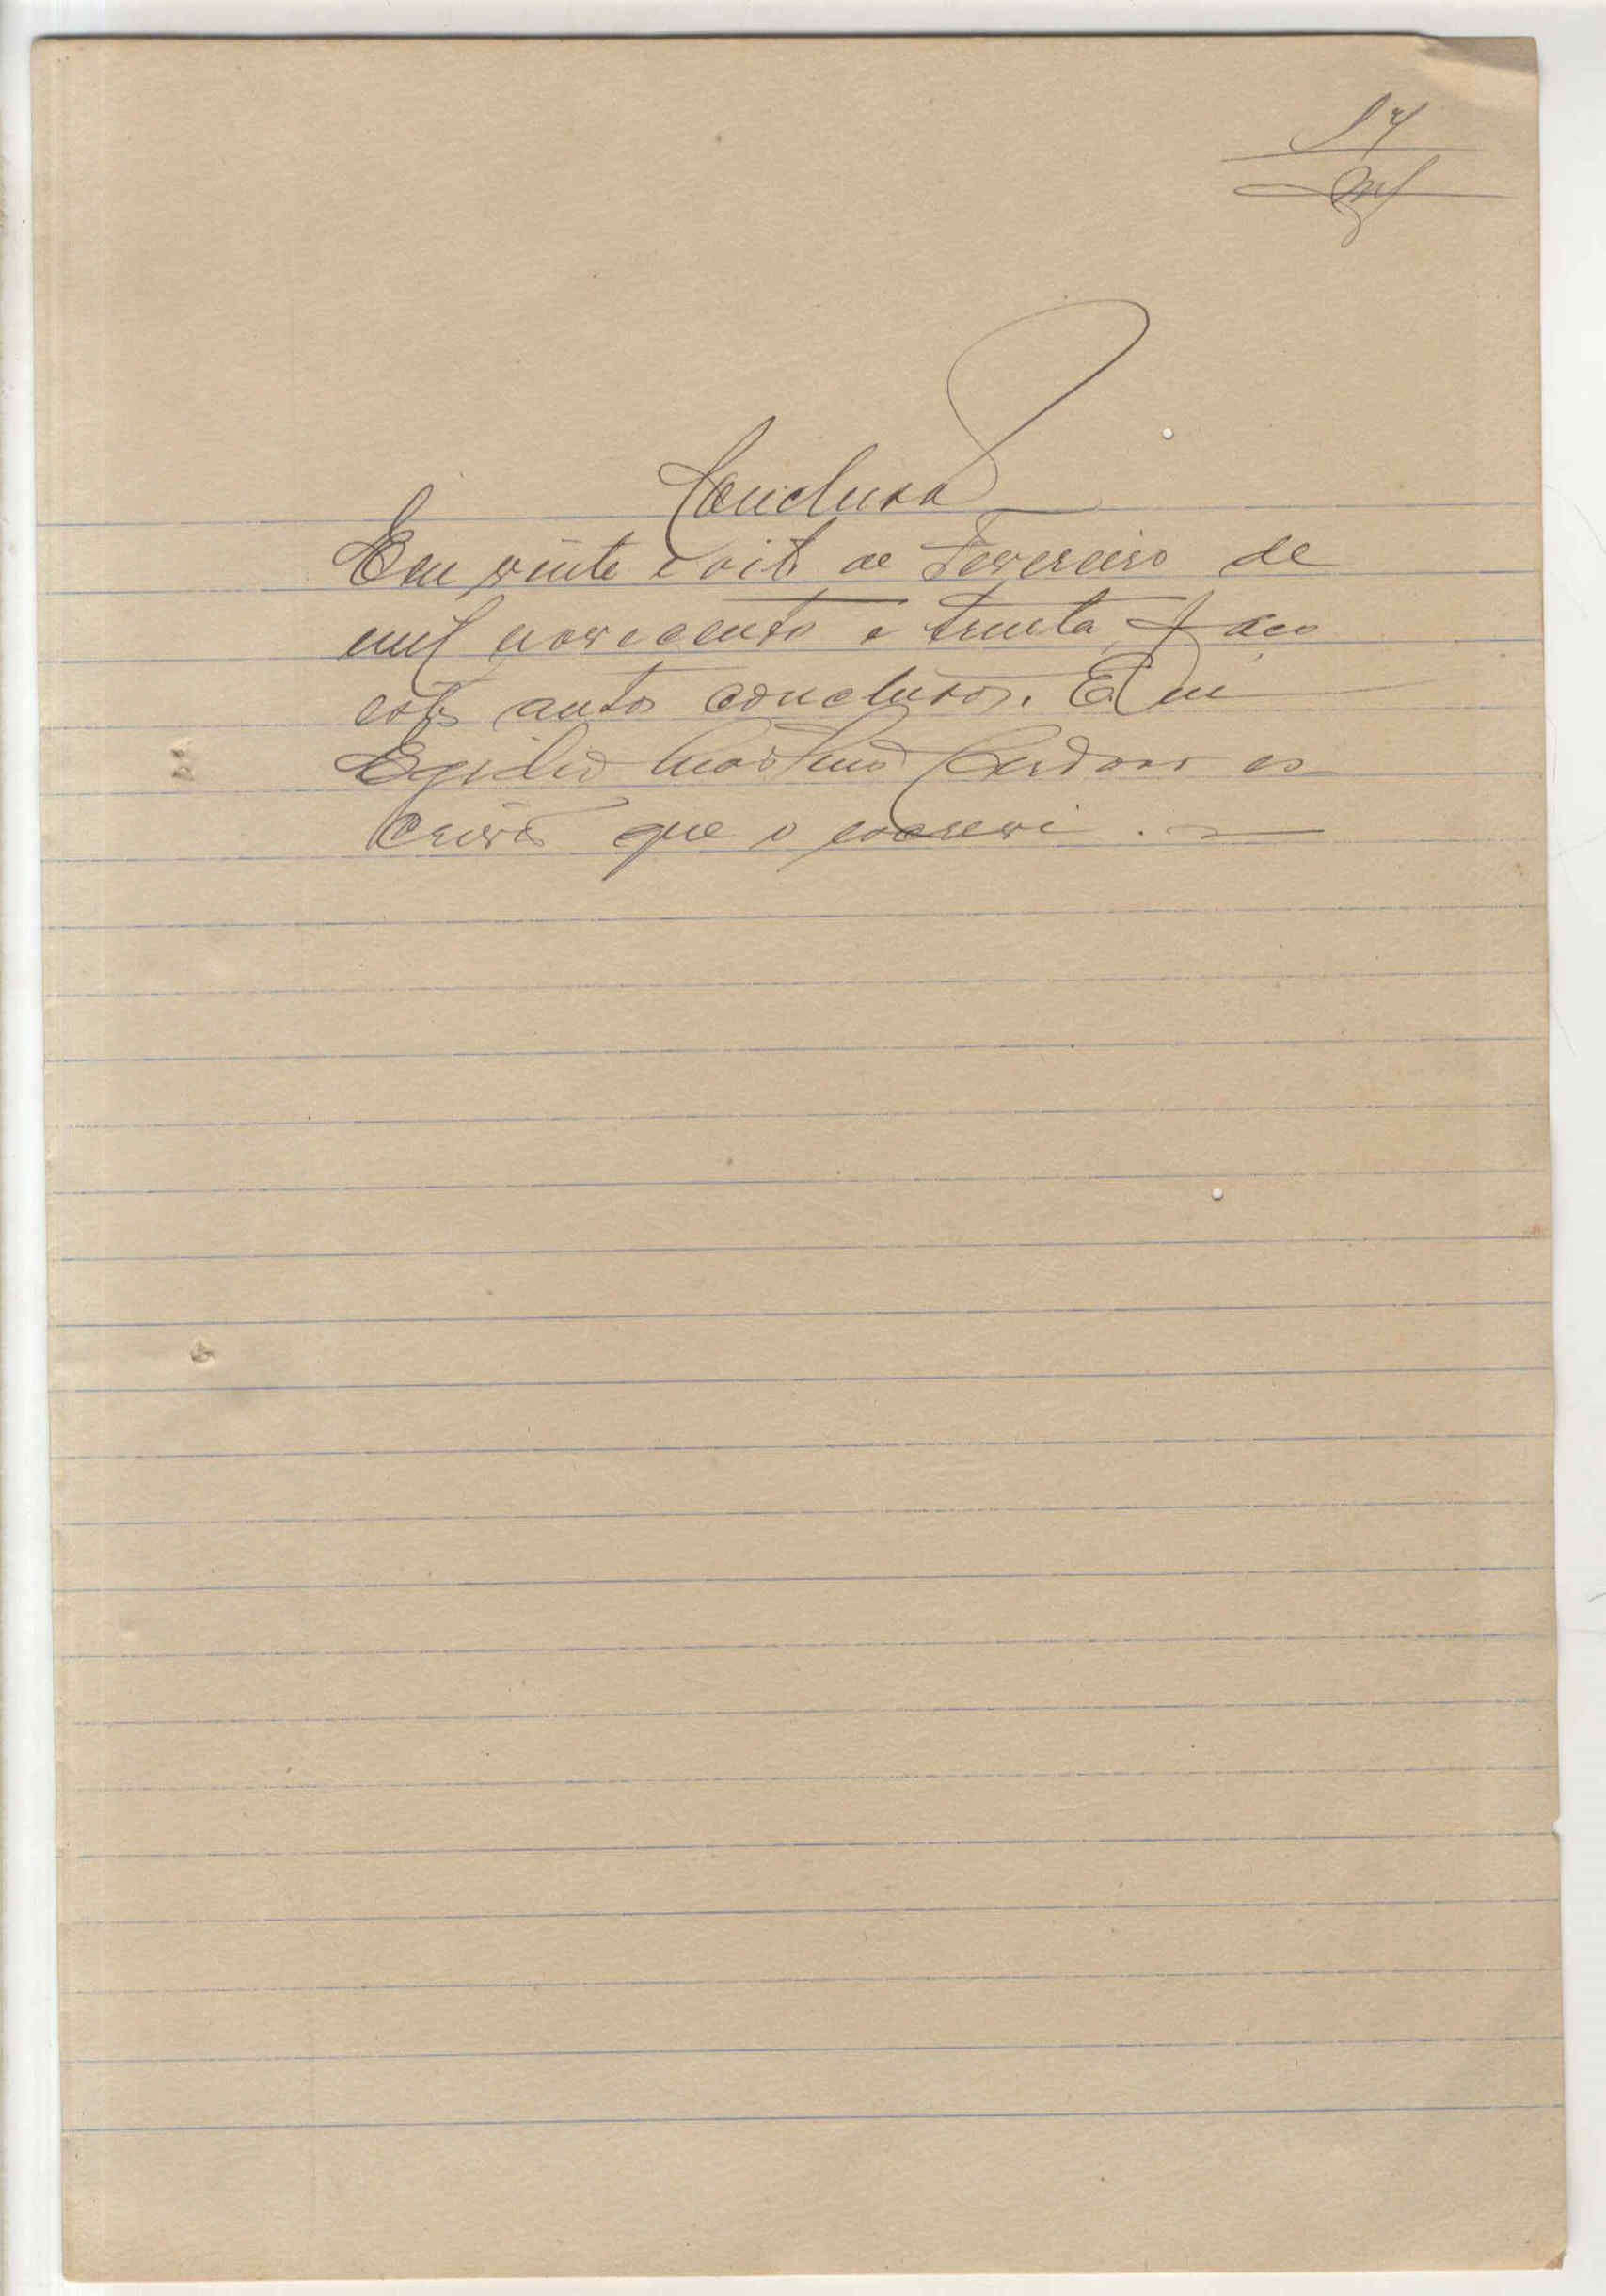 17
Conclusão
Em vinte e oito de Fevereiro de
mil novecentos e trinta faço
estes autos conclusos. Eu
Egidio Martins Cardoso es-
crivão que o escrevi.